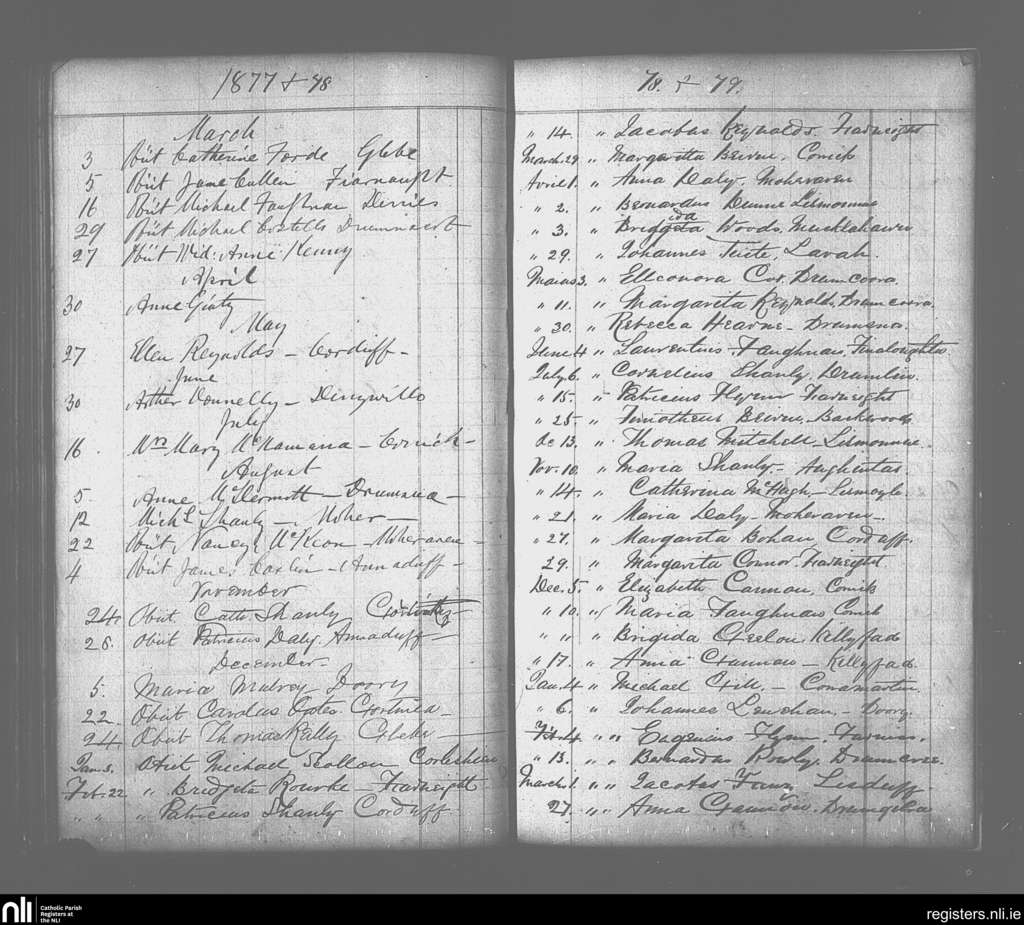 1877 & 78
March
3 Obiit Catherine Forde Glebe
5 Obiit Jane Cullen Fiarnaught
16 Obiit Michael Faughnan Derries
29 Obiit Michael Costello
27 Obiit Wid: Anne Kenny
April
30 Anne Ginty
May
27 Ellen Reynolds - Corduff -
June
30 Arther Donnelly -
July
16 Mrs Mary McNamara -
August
5. Anne McDermott -
12 Michl Shanly - Moher -
22 Obiit Nancy McKeon - Moheraven -
4 Obiit James Carlin - Annaduff -
November
24 Obiit Cath. Shanly
26. Obiit Patricius Daly. Annaduff -
December -
5. Maria Mulvey Doory
22. Obiit Carolus
24 Obiit Thomas Rally Glebe
Jan 5. Obiit Michael Scollon
Feb. 22 " Bridgeta Rourke - Fearneight
" " " Patricius Shanly Corduff
78. & 79.
" 14. " Jacobus Reynolds. Fearneight
March. 29 " Margaritta Beirne. Comick
Avril 1. " Anna Daly. Moheraven
" 2. " Bernardus Lismoine
" 3. " Woods. Mucklahaun
" 29. " Johannes Tuite. Lavah.
Maias 3. " Elleonora Cox. Drumcoora.
" 11. " Margarita Reynolds. Drumcoora.
" 30. " Rebecca Hearne -
June 4 " Laurentius Faughnan.
July. 6. " Cornelius Shanly. Drumlin.
" 15. " Patricius Flynn Fearneight
" 25. " Timotheus Beirne. Backwoods
Oc 13. " Thomas Mitchell.
Nov. 10. " Maria Shanly - Aughintas
" 14. " Catherina McHugh -
" 21. " Maria Daly - Moheraven -
" 27. " Margarita Bohan Corduff.
29. " Margarita Connor. Fearneight
Dec. 5. " Elizabeth Cannon, Comick
" 10. " Maria Faughnan Comick
" " " Brigida Geelon Killyfad
" 17. " Anna Gannon - Killyfad.
Jan. 4 " Michael Gill. - Conamartin.
" 6. " Johannes Lenehan. - Doory.
Feb. 4. " " Eugenius Flynn.
" 13. " " Bernardus Rowly.
March. 1. " " Jacobus Lisduff
" 27. " " Anna
nli
Catholic Parish
Registers at
the NLI
registers.nli.ie